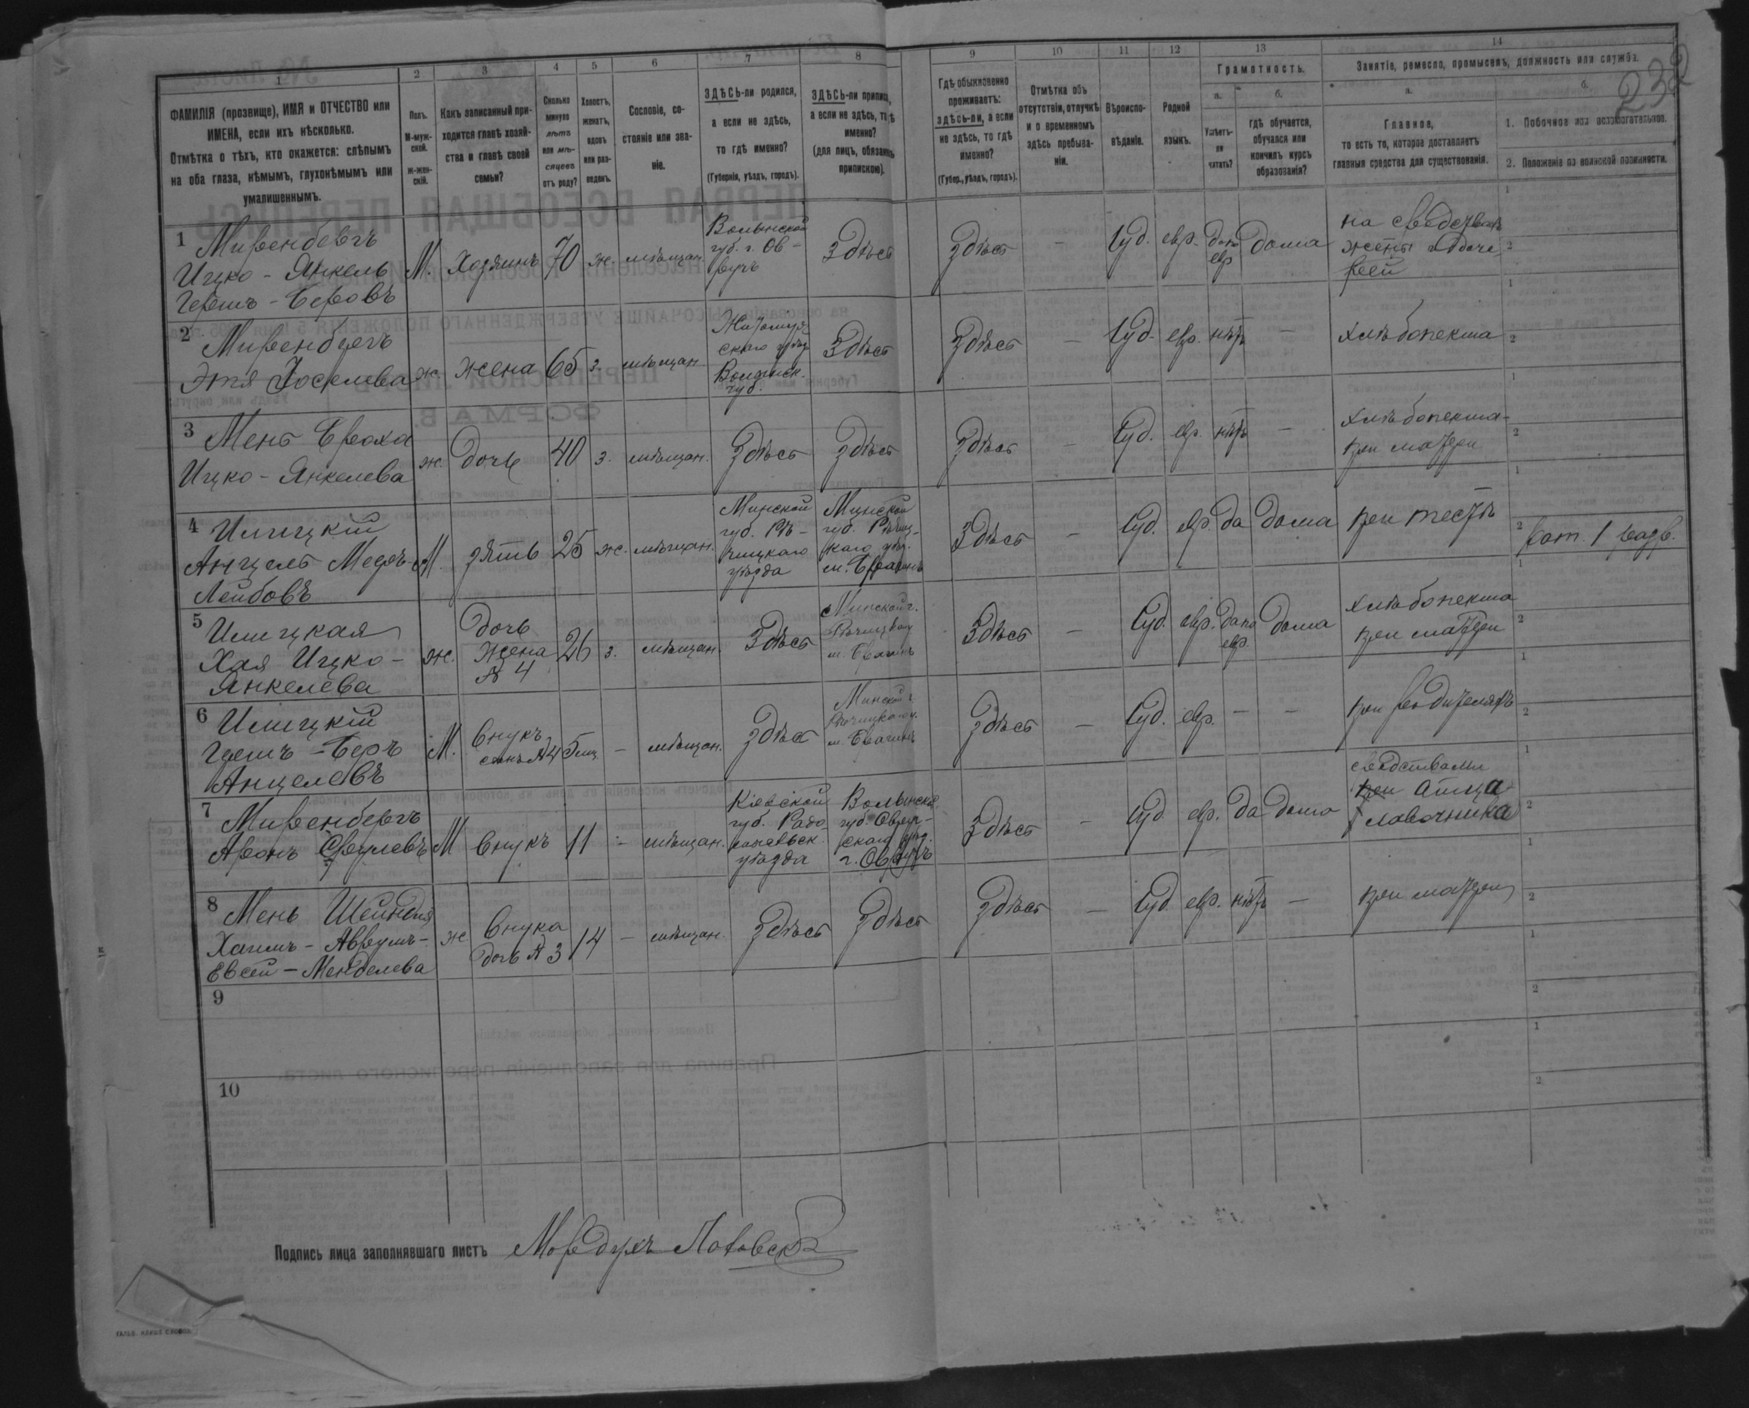 232
1 2 3 4 5 6 7 8 9 10 11 12 13 14
ФАМИЛІЯ (прозвище), ИМЯ и ОТЧЕСТВО или ИМЕНА, если ихъ нѣсколько.
Отмѣтка о тѣхъ, кто окажется: слѣпымъ на оба глаза, нѣмымъ, глухонѣмымъ или умалишеннымъ.
Полъ.
М-муж-ской.
Ж-жен-скій.
Какъ записанный при-ходится главѣ хозяй-ства и главѣ своей семьи?
Сколько минуло лѣтъ или мѣ-сяцевъ отъ роду?
Холостъ, женатъ, вдовъ или раз-веденъ.
Сословіе, со-стояніе или зва-ніе.
ЗДѢСЬ-ли родился, а если не здѣсь, то гдѣ именно?
(Губернія, уѣздъ, городъ).
ЗДѢСЬ-ли приписа, а если не здѣсь, то гдѣ именно?
(для лицъ, обязанн припискою).
Гдѣ обыкновенно проживаетъ: здѣсь-ли, а если не здѣсь, то гдѣ именно?
(Губер., уѣздъ, городъ).
Отмѣтка объ отсутствіи, отлучкѣ и о временномъ здѣсь пребыва-ніи.
Вѣроиспо-вѣданіе.
Родной языкъ.
Грамотность.
а.
Умѣетъ-ли читать?
б.
гдѣ обучается, обучался или кончилъ курсъ образованія?
Занятіе, ремесло, промыселъ, должность или служба.
а.
Главное,
то есть то, которое доставляетъ главныя средства для существованія.
б.
1. Побочное или вспомогательное.
2. Положеніе по воинской повинности.
1 Миренбергъ
Ицко - Янкель
Гершъ - Беровъ
М. Хозяинъ 70 ж. мѣщан.
Волынской
губ. г. Ов-
ручъ
Здѣсь Здѣсь - Іуд. евр. да по
евр дома
на средства
жены и доче
рей
2 Миренбергъ
Этя Іоселева
ж жена 65 з. мѣщан.
Житомир
скаго уѣзд
Волынск.
губ.
Здѣсь Здѣсь - Іуд. евр. нѣтъ - хлѣбопекша
3 Мень Броха
Ицко - Янкелева
ж. дочь 40 з. мѣщан. Здѣсь Здѣсь Здѣсь - Іуд. евр. нѣтъ -
хлѣбопекша
при матери
4 Илицкій
Анцель Медъ-
Лейбовъ
М. зять 25 ж. мѣщан.
Минской
губ. Рѣ-
чицкаго
уѣзда
Минской
губ. Рѣчиц-
каго уѣз.
м. Брагинъ
Здѣсь - Іуд. евр да дома при тестѣ
рат. 1 разр.
5 Илицкая
Хая Ицко-
Янкелева
ж.
дочь
жена
№ 4
26 з. мѣщан. Здѣсь
Минской г.
Рѣчицкаго
м. Брагинъ
Здѣсь - Іуд. евр. да по
евр. дома
хлѣбопекша
при матери
6 Илицкій
Гершъ - Беръ
Анцелевъ
М.
внукъ
сынъ №4
5 мц. - мѣщан. Здѣсь
Минской г.
Рѣчицкаго у.
м. Брагинъ
Здѣсь - Іуд. евр. - - при родителяхъ
7 Миренбергъ
Аронъ Срулевъ
М внукъ 11 - мѣщан.
Кіевской
губ. Радо
мысльск.
уѣзда
Волынской
губ. Овруч-
скаго уѣз.
г. Овручъ
Здѣсь - Іуд евр. да дома
средствами
при отца
лавочника
8 Мень Шейндля
Хаимъ - Аврумъ-
Евсей - Менделева
ж
внука
дочь № 3
14 - мѣщан. Здѣсь Здѣсь Здѣсь - Іуд евр. нѣтъ - при матери
9
10
Подпись лица заполнявшаго листъ